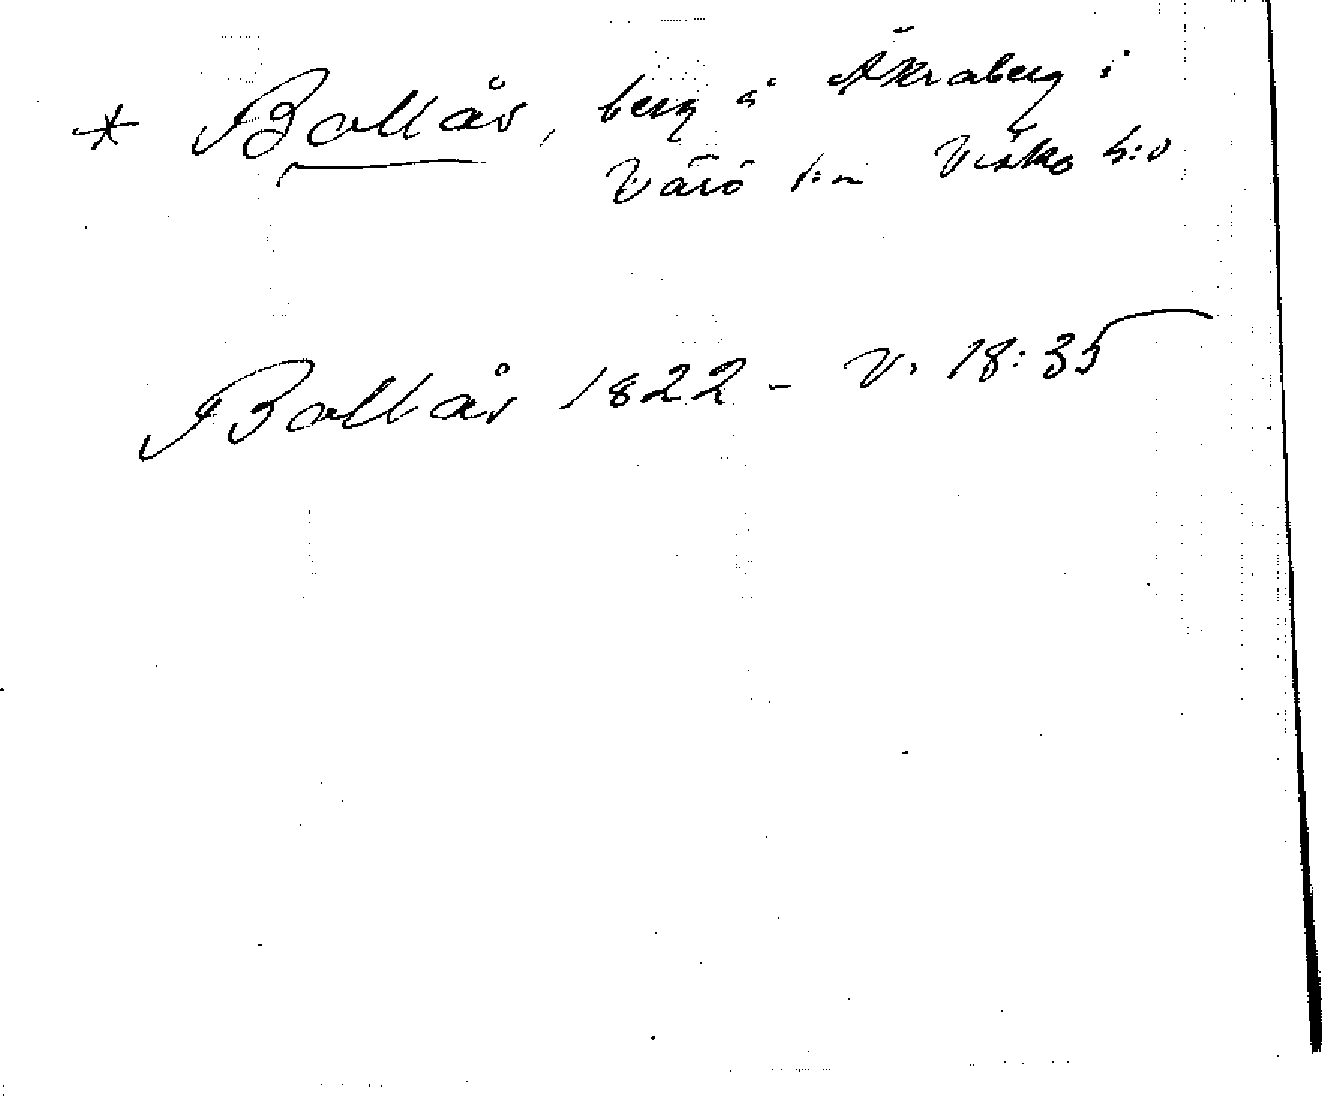 * Ballås, berg å Åkraberg i
Värö s:n Viske h:d
Ballås 1822 - V. 18:35